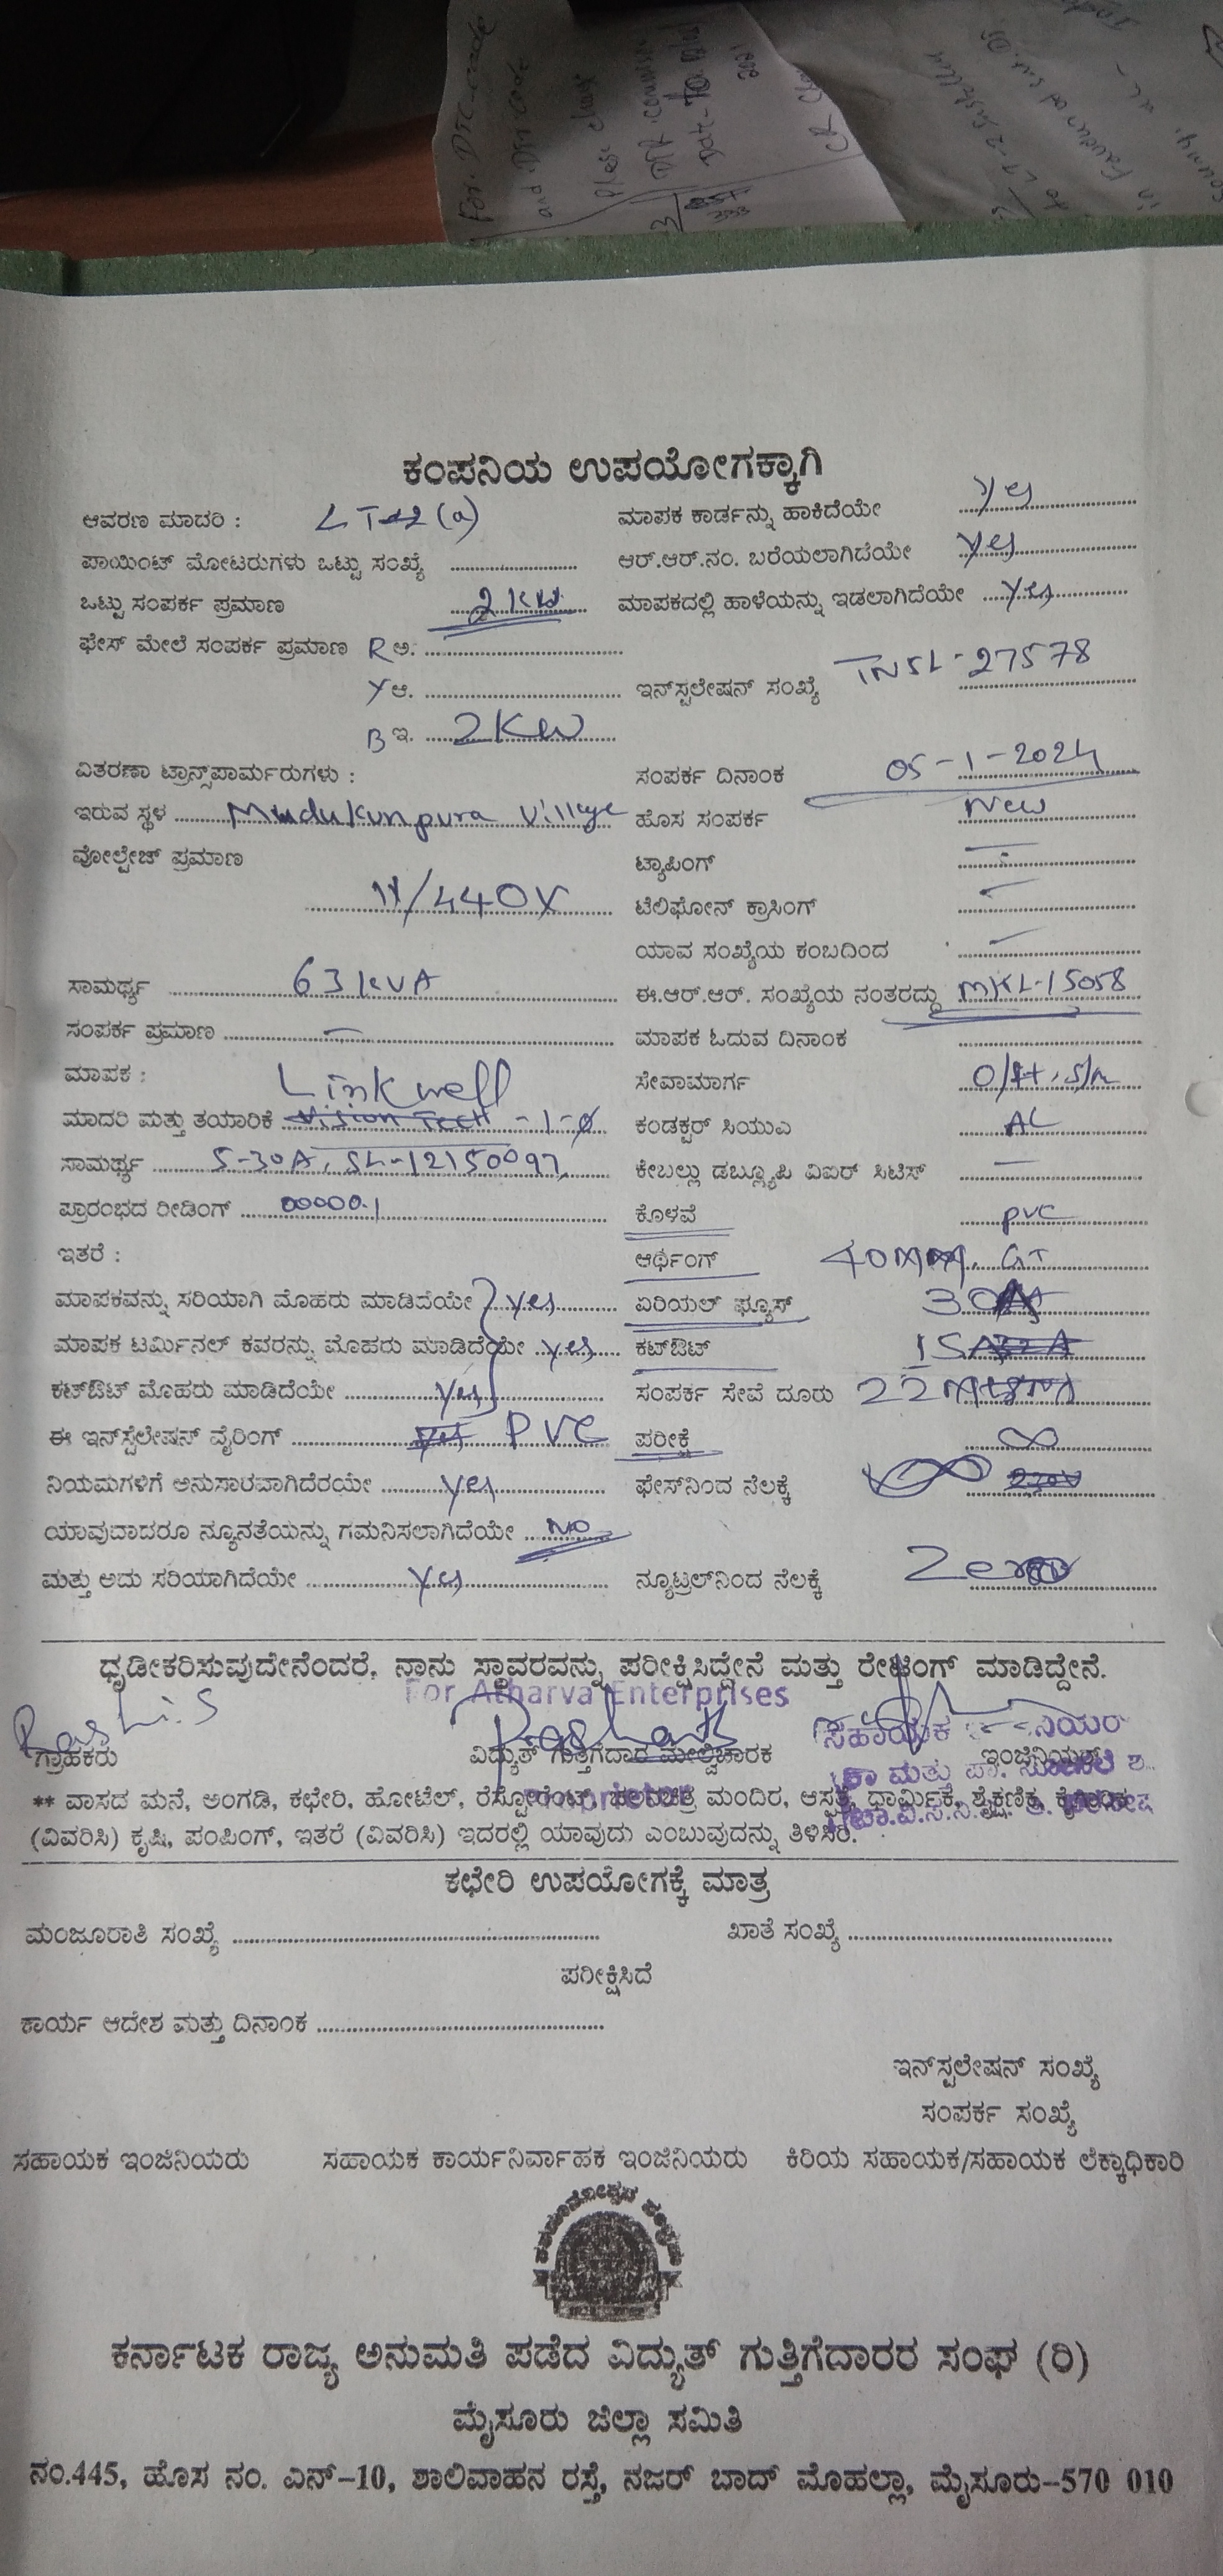 For. DTC code
and DTr code
ಕಂಪನಿಯ ಉಪಯೋಗಕ್ಕಾಗಿ
ಆವರಣ ಮಾದರಿ : LT-2 (a) ಮಾಪಕ ಕಾರ್ಡನ್ನು ಹಾಕಿದೆಯೇ yes
ಪಾಯಿಂಟ್ ಮೋಟರುಗಳು ಒಟ್ಟು ಸಂಖ್ಯೆ ಆರ್.ಆರ್.ನಂ. ಬರೆಯಲಾಗಿದೆಯೇ yes
ಒಟ್ಟು ಸಂಪರ್ಕ ಪ್ರಮಾಣ 2 KW ಮಾಪಕದಲ್ಲಿ ಹಾಳೆಯನ್ನು ಇಡಲಾಗಿದೆಯೇ yes
ಫೇಸ್ ಮೇಲೆ ಸಂಪರ್ಕ ಪ್ರಮಾಣ R ಅ.
Y ಆ. ಇನ್‌ಸ್ಟಲೇಷನ್ ಸಂಖ್ಯೆ TNSL-27578
B ಇ. 2KW
ವಿತರಣಾ ಟ್ರಾನ್ಸ್‌ಪಾರ್ಮರುಗಳು : ಸಂಪರ್ಕ ದಿನಾಂಕ 05-1-2024
ಇರುವ ಸ್ಥಳ Mudukunpura Village ಹೊಸ ಸಂಪರ್ಕ New
ವೋಲ್ಟೇಜ್ ಪ್ರಮಾಣ ಟ್ಯಾಪಿಂಗ್ —
11/440V ಟೆಲಿಫೋನ್ ಕ್ರಾಸಿಂಗ್ —
ಯಾವ ಸಂಖ್ಯೆಯ ಕಂಬದಿಂದ —
ಸಾಮರ್ಥ್ಯ 63 KVA ಈ.ಆರ್.ಆರ್. ಸಂಖ್ಯೆಯ ನಂತರದ್ದು MKL-15058
ಸಂಪರ್ಕ ಪ್ರಮಾಣ — ಮಾಪಕ ಓದುವ ದಿನಾಂಕ
ಮಾಪಕ : Linkwell ಸೇವಾಮಾರ್ಗ O/H, S/M
ಮಾದರಿ ಮತ್ತು ತಯಾರಿಕೆ Vision Tech - 1-ϕ ಕಂಡಕ್ಟರ್ ಸಿಯುಎ AL
ಸಾಮರ್ಥ್ಯ 5-30A, SL-12150097 ಕೇಬಲ್ಲು ಡಬ್ಲ್ಯೂಪಿ ವಿಐರ್ ಸಿಟಿಸ್ —
ಪ್ರಾರಂಭದ ರೀಡಿಂಗ್ 00000.1 ಕೊಳವೆ PVC
ಇತರೆ : ಆರ್ಥಿಂಗ್ 40MM, GI
ಮಾಪಕವನ್ನು ಸರಿಯಾಗಿ ಮೊಹರು ಮಾಡಿದೆಯೇ yes ಏರಿಯಲ್ ಫ್ಯೂಸ್ 30A
ಮಾಪಕ ಟರ್ಮಿನಲ್ ಕವರನ್ನು ಮೊಹರು ಮಾಡಿದೆಯೇ yes ಕಟ್‌ಔಟ್ 15A
ಕಟ್‌ಔಟ್ ಮೊಹರು ಮಾಡಿದೆಯೇ yes ಸಂಪರ್ಕ ಸೇವೆ ದೂರು 22
ಈ ಇನ್‌ಸ್ಟೆಲೇಷನ್ ವೈರಿಂಗ್ PVC ಪರೀಕ್ಷೆ ∞
ನಿಯಮಗಳಿಗೆ ಅನುಸಾರವಾಗಿದೆರಯೇ yes ಫೇಸ್‌ನಿಂದ ನೆಲಕ್ಕೆ ∞ 230V
ಯಾವುದಾದರೂ ನ್ಯೂನತೆಯನ್ನು ಗಮನಿಸಲಾಗಿದೆಯೇ NO
ಮತ್ತು ಅದು ಸರಿಯಾಗಿದೆಯೇ yes ನ್ಯೂಟ್ರಲ್‌ನಿಂದ ನೆಲಕ್ಕೆ Zero
ಧೃಡೀಕರಿಸುವುದೇನೆಂದರೆ, ನಾನು ಸ್ಥಾವರವನ್ನು ಪರೀಕ್ಷಿಸಿದ್ದೇನೆ ಮತ್ತು ರೇಟಿಂಗ್ ಮಾಡಿದ್ದೇನೆ.
For Atharva Enterprises
ಗ್ರಾಹಕರು ವಿದ್ಯುತ್ ಗುತ್ತಿಗೆದಾರ ಮೇಲ್ವಿಚಾರಕ ಇಂಜಿನಿಯರ್
** ವಾಸದ ಮನೆ, ಅಂಗಡಿ, ಕಛೇರಿ, ಹೋಟೆಲ್, ರೆಸ್ಟೋರೆಂಟ್, ಚಲನಚಿತ್ರ ಮಂದಿರ, ಆಸ್ಪತ್ರೆ, ಧಾರ್ಮಿಕ, ಶೈಕ್ಷಣಿಕ, ಕೈಗಾರಿಕೆ
(ವಿವರಿಸಿ) ಕೃಷಿ, ಪಂಪಿಂಗ್, ಇತರೆ (ವಿವರಿಸಿ) ಇದರಲ್ಲಿ ಯಾವುದು ಎಂಬುವುದನ್ನು ತಿಳಿಸಿರಿ.
ಕಛೇರಿ ಉಪಯೋಗಕ್ಕೆ ಮಾತ್ರ
ಮಂಜೂರಾತಿ ಸಂಖ್ಯೆ ಖಾತೆ ಸಂಖ್ಯೆ
ಪರೀಕ್ಷಿಸಿದೆ
ಕಾರ್ಯ ಆದೇಶ ಮತ್ತು ದಿನಾಂಕ
ಇನ್‌ಸ್ಟಲೇಷನ್ ಸಂಖ್ಯೆ
ಸಂಪರ್ಕ ಸಂಖ್ಯೆ
ಸಹಾಯಕ ಇಂಜಿನಿಯರು ಸಹಾಯಕ ಕಾರ್ಯನಿರ್ವಾಹಕ ಇಂಜಿನಿಯರು ಕಿರಿಯ ಸಹಾಯಕ/ಸಹಾಯಕ ಲೆಕ್ಕಾಧಿಕಾರಿ
ಕರ್ನಾಟಕ ರಾಜ್ಯ ಅನುಮತಿ ಪಡೆದ ವಿದ್ಯುತ್ ಗುತ್ತಿಗೆದಾರರ ಸಂಘ (ರಿ)
ಮೈಸೂರು ಜಿಲ್ಲಾ ಸಮಿತಿ
ನಂ.445, ಹೊಸ ನಂ. ಎನ್-10, ಶಾಲಿವಾಹನ ರಸ್ತೆ, ನಜರ್ ಬಾದ್ ಮೊಹಲ್ಲಾ, ಮೈಸೂರು-570 010